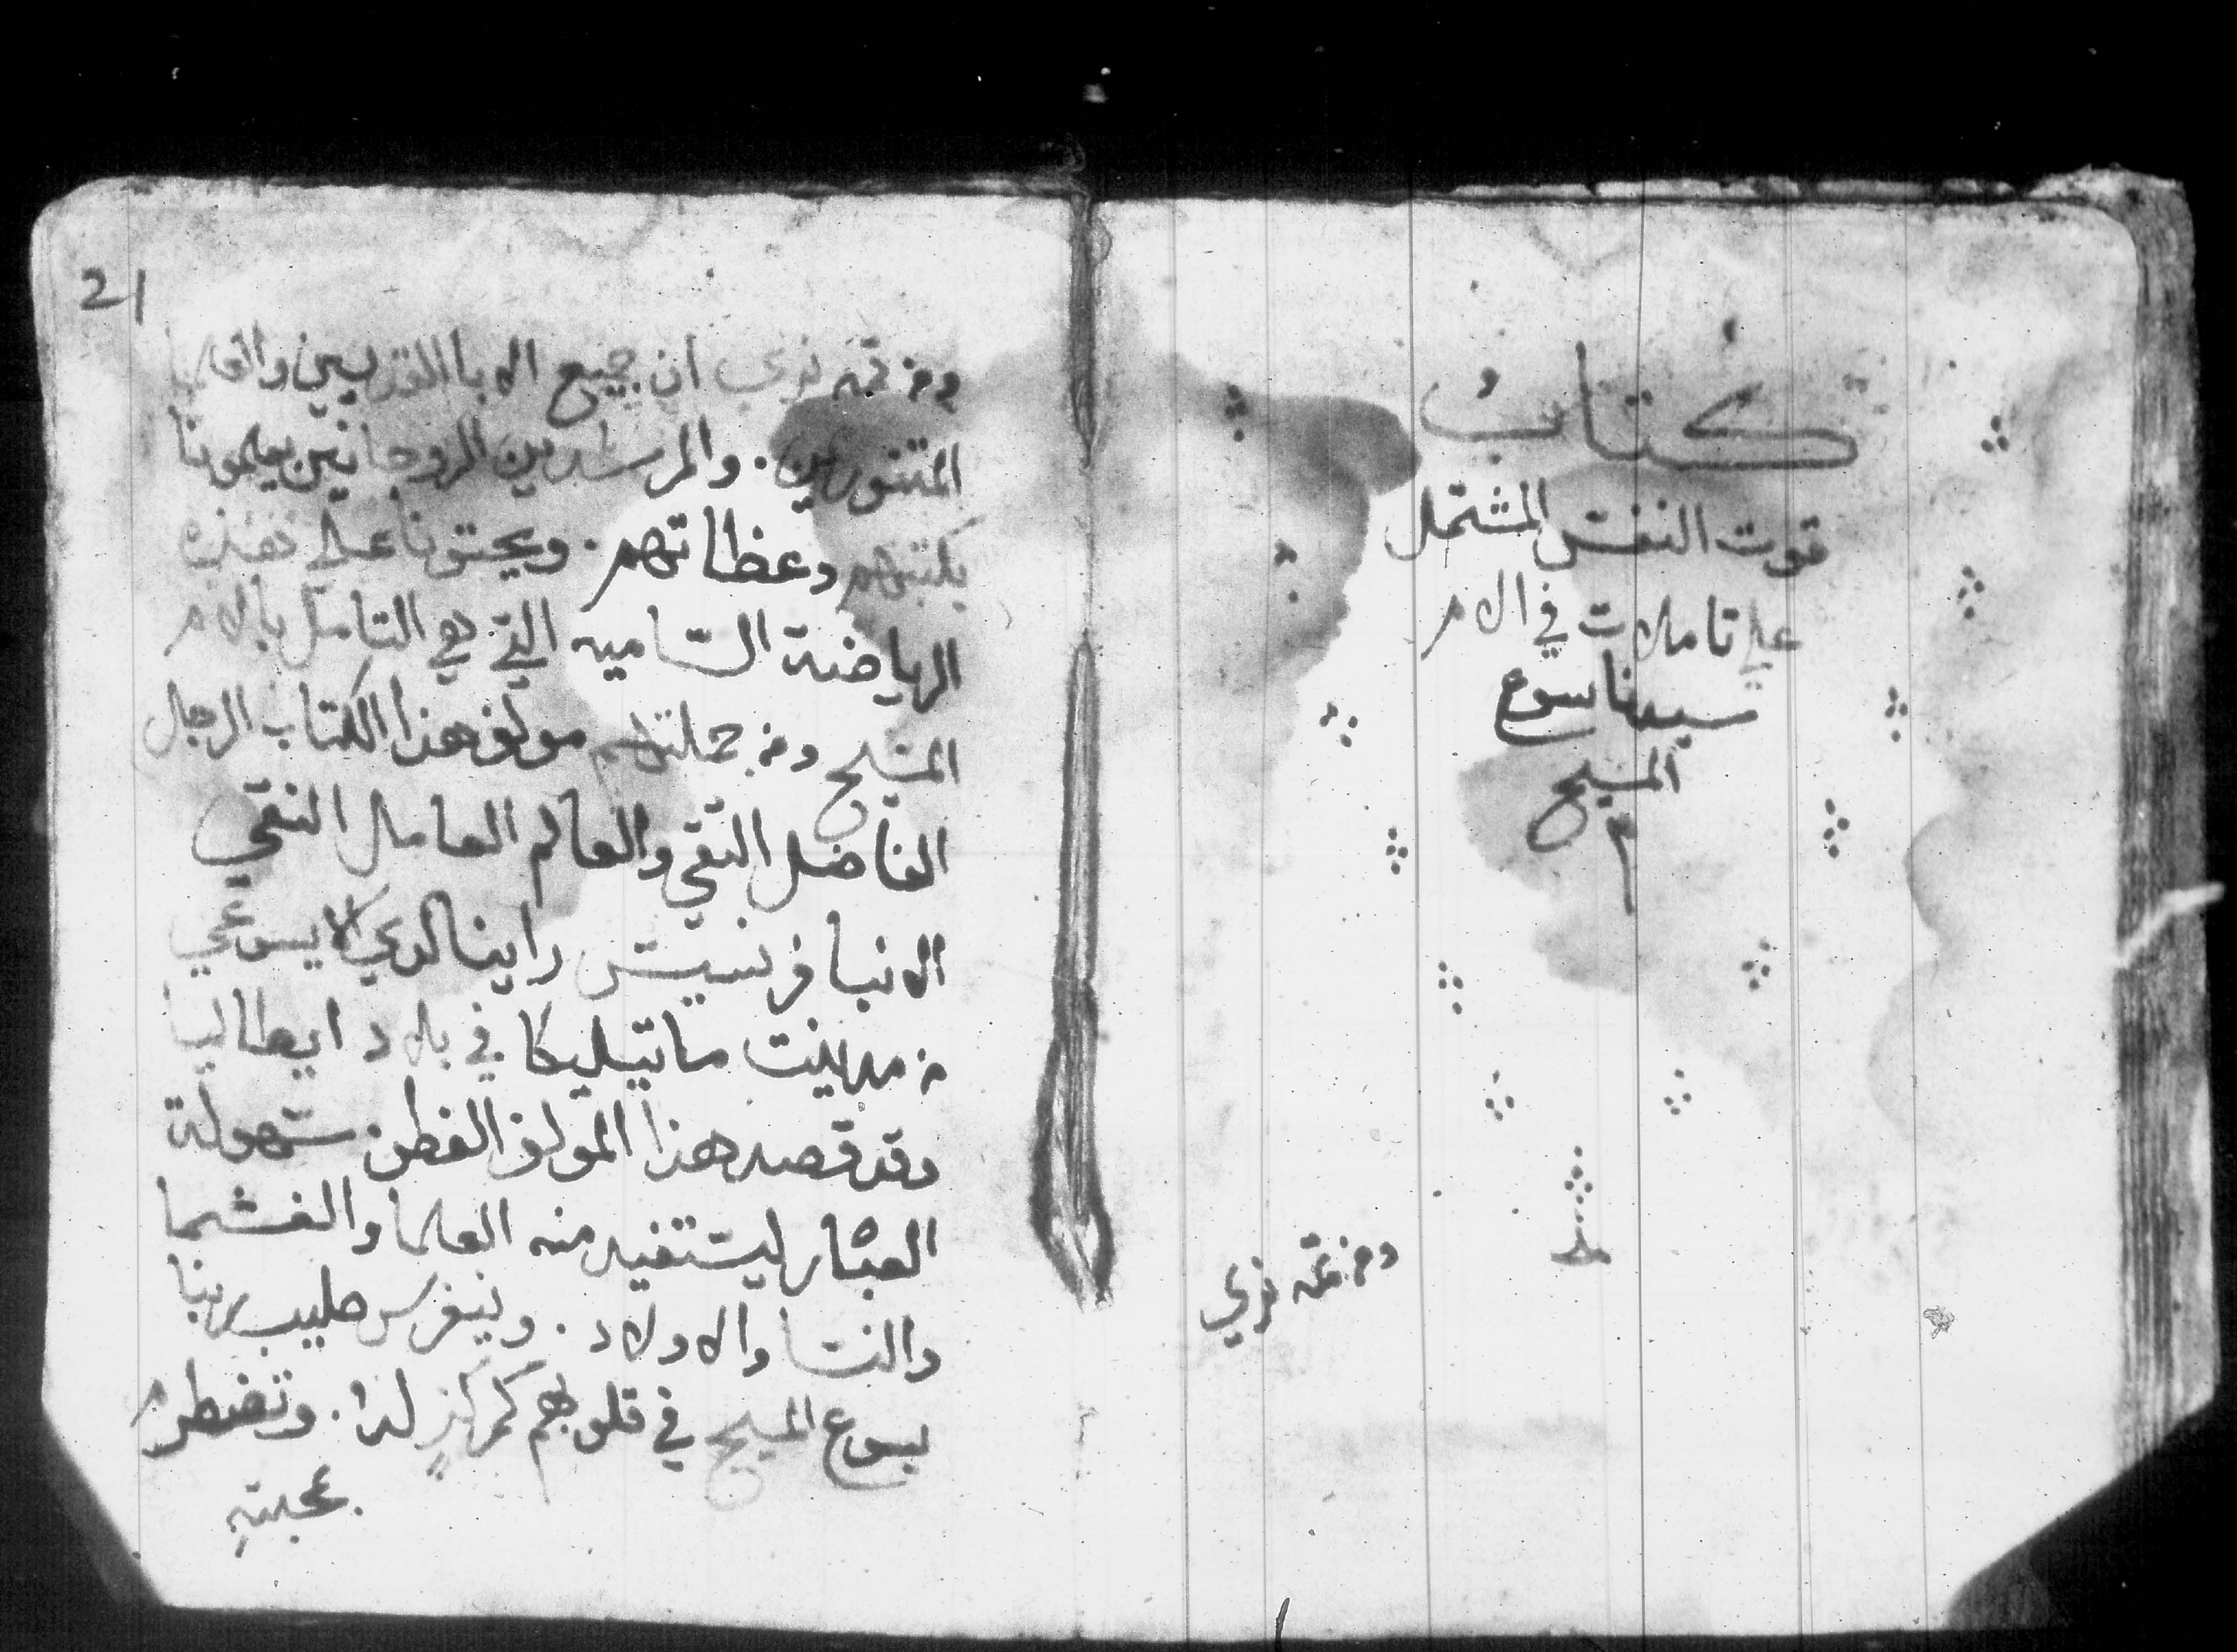 كتاب
قوت النفس المشتمل
علي تاملات في الام
سيدنا يسوع
المسيح
م
ومن ثمه نري
21
ومن ثمه نري ان جميع الابا القديسين والعلما
المتنورين. والمرشدين الروحانيين يعلمونا
بكتبهم وعظاتهم. ويحثونا علي هذه
الرياضة السامية التي هي التامل بالام
المسيح ومن جملتهم مولف هذا الكتاب الرجل
الفاضل التقي والعالم العامل النقي
الانبا فرنسيس راينالدي الايسوعي
من مدينت ماتيليكا في بلاد ايطاليا
وقد قصد هذا المولف الفطن. سهولة
العباره ليستفيد منه العلما والغشما
والنسا والاولاد. وينغرس صليب ربنا
يسوع المسيح في قلوبهم كمركز لها. وتضطرم
بمحبته